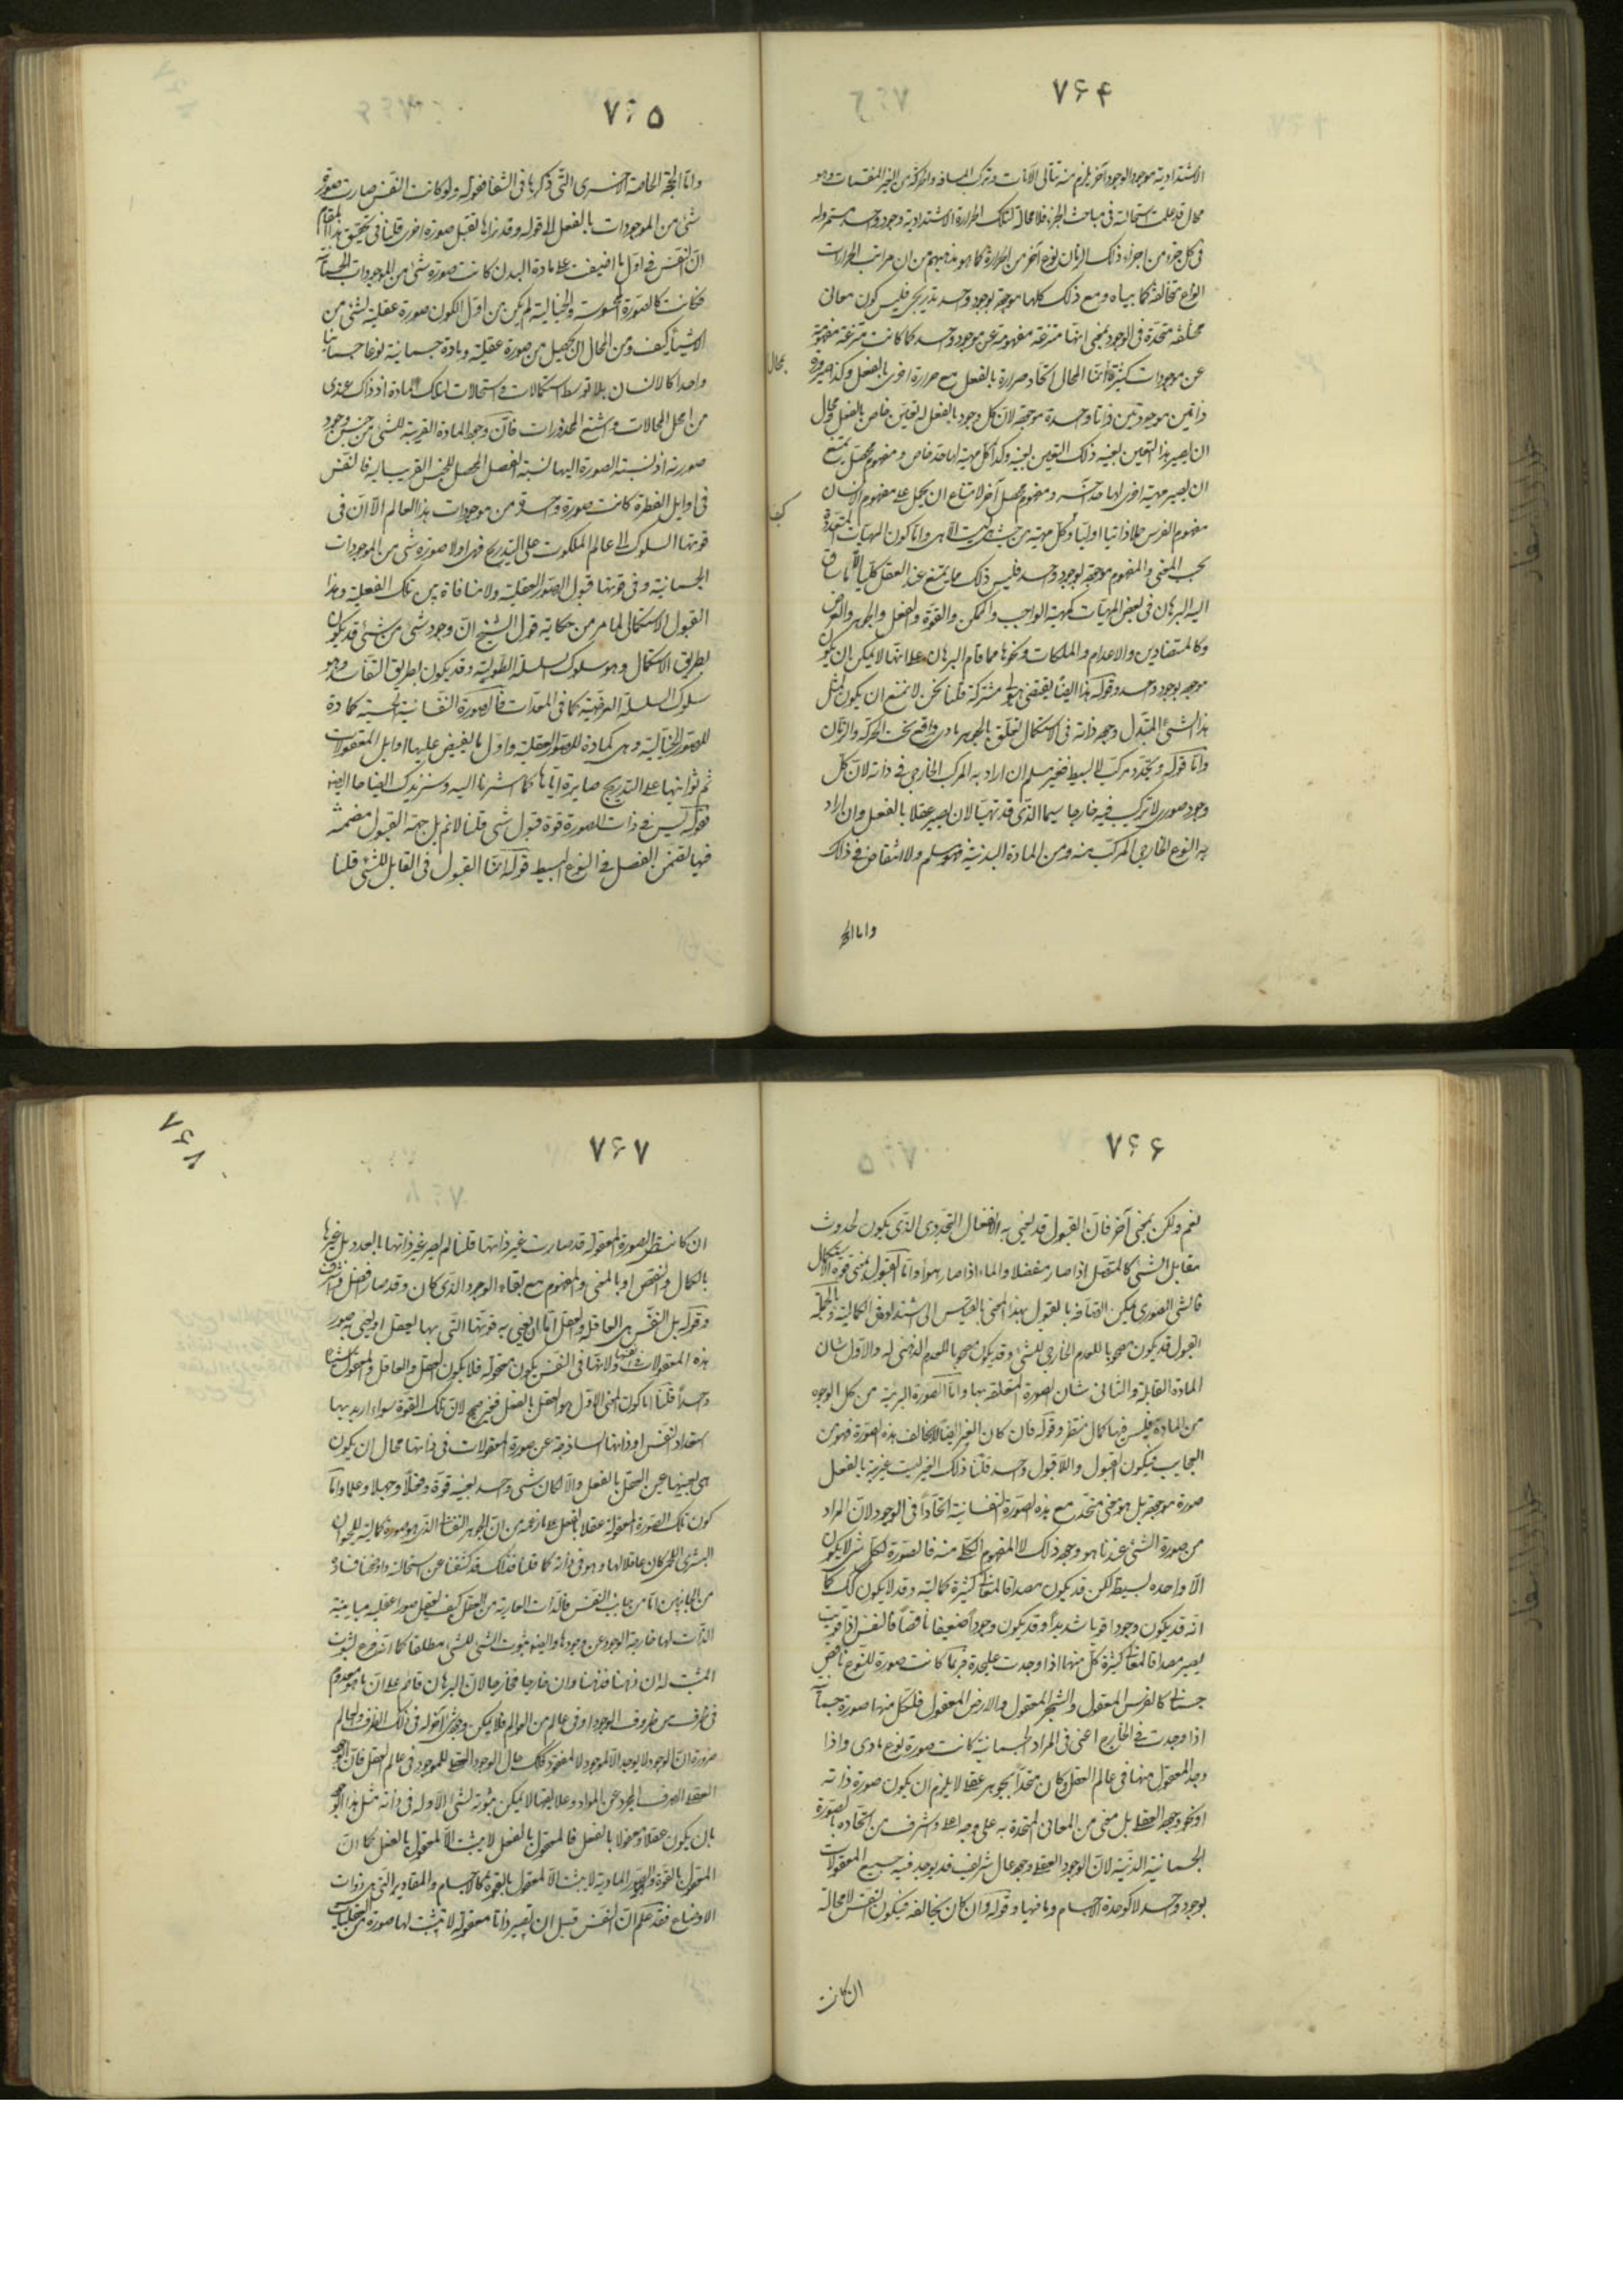 ۷۶۴
الاشتدادية موجود الوجود آخر يلزم منه تتالى الآنات وتركب المسافة والحركة من الغير المنقسمات وهو
محال قد علمت استحالته في مباحث الجزء فلا محالة لتلك الحرارة الاشتدادية وجود واحد مستمر وله
في كل جزء من اجزاء ذلك الزمان نوع آخر من الحرارة كما هو مذهبهم من ان مراتب الحرارات
انواع متخالفة كما بيناه ومع ذلك كلها موجودة بوجود واحد تدريجي فليس كون معاني
مختلفة متحدة في الوجود بمعنى انها منتزعة مفهومة عن موجود واحد كما كانت منتزعة مفهومة
عن موجودات كثيرة انما المحال اتحاد حرارة بالفعل مع حرارة اخرى بالفعل وكذا صيرورة
ذاتين موجودتين ذاتا واحدة موجودة لان كل وجود بالفعل له تعين خاص بالفعل ومحال
ان يصير هذا التعين بعينه ذلك التعين بعينه وكذا كل مهية لها حد خاص ومفهوم محصل يمتنع
ان يصير مهية اخرى لها حد آخر ومفهوم محصل آخر لامتناع ان يحمل على مفهوم الانسان
مفهوم الفرس حملا ذاتيا اوليا وكل مهية من حيث هي ليست الا هي واما كون المهيات المتعددة
بحسب المعنى والمفهوم موجودة بوجود واحد فليس ذلك مما يمتنع عند العقل كليا الا ما ساق
اليه البرهان في بعض المهيات كمهية الواجب والممكن والقوة والفعل والجوهر والعرض
وكالمتضادين والاعدام والملكات ونحوها مما قام البرهان على انها لا يمكن ان يكون
موجودة بوجود واحد وقوله هذا ايضا يقتضي هيولى مشتركة قلنا نحن لا نمنع ان يكون لمثل
هذا الشيء المتبدل وجود ذاته في الاستكمال تعلق بالجوهر مادي واقع تحت الحركة والزمان
واما قوله وتجدد مركب لا بسيط فغير مسلم ان اراد به المركب الخارجي في ذاته لان كل
وجود صوري لا تركيب فيه خارجا سيما الذي قد تهيأ لان يصير عقلا بالفعل وان اراد
به النوع الخارجي المركب منه ومن المادة البدنية فهو مسلم ولا انتقاض في ذلك
واما الحجة
محال
۷۶۵
واما الحجة الخاصة الاخرى التي ذكرها في الشفا فقوله ولو كانت النفس صارت صورة
شيء من الموجودات بالفعل الى قوله وقد نراها تقبل صورة اخرى قلنا في تحقيق هذا المقام
ان النفس في اول ما افيضت على مادة البدن كانت صورة شيء من الموجودات الجسمانية
فكانت كالصورة المحسوسة والخيالية لم يكن من اول الكون صورة عقلية لشيء من
الاشياء كيف ومن المحال ان يحصل من صورة عقلية ومادة جسمانية نوعا جسمانيا
واحدا كالانسان بلا توسط استكمالات واستحالات لتلك المادة اذ ذاك عندي
من امحل المحالات واشنع المحذورات فان وجود المادة القريبة للشيء من جنس وجود
صورته اذ نسبة الصورة اليها نسبة الفصل المحصل للجنس القريب اليه فالنفس
في اوايل الفطرة كانت صورة واحدة من موجودات هذا العالم الا ان في
قوتها السلوك الى عالم الملكوت على التدريج فهي اولا صورة شيء من الموجودات
الجسمانية وفي قوتها قبول الصور العقلية ولا منافاة بين تلك الفعلية وهذا
القبول الاستكمالي لما مر من حكاية قول الشيخ ان وجود شيء من شيء قد يكون
بطريق الاستكمال وهو سلوك السلسلة الطولية وقد يكون بطريق التفاسد وهو
سلوك السلسلة العرضية كما في المعدات فالصورة النفسانية الحسية كمادة
للصورة الخيالية وهي كمادة للصورة العقلية واول ما يفيض عليها اوايل المعقولات
ثم ثوانيها على التدريج صايرة اياها كما اشرنا اليه وسنزيدك ايضاحا ايضا
فقوله ليس في ذات الصورة قوة قبول شيء قلنا لا نم بل جهة القبول مضمنة
فيها تضمن الفصل في النوع البسيط قوله انما القبول في القابل للشيء قلنا
۷۶۶
نعم ولكن بمعنى آخر فان القبول قد يعنى به الانفعال التجددي الذي يكون لحدوث
مقابل الشيء كالمتصل اذا صار منفصلا والماء اذا صار هواء واما القبول بمعنى قوة الاستكمال
فالشيء الصوري يمكن اتصافه بالقبول بهذا المعنى بالقياس الى اشتداده في الكمالية وبالجملة
القبول قد يكون مصحوبا للعدم الخارجي للشيء وقد يكون مصحوبا للعدم الذهني له والاول شان
المادة القابلة والثاني شان الصورة المتعلقة بها واما الصورة البرئية من كل الوجوه
من المادة فليس فيها كمال منتظر وقوله فان كان الغير ايضا لا يخالف هذه الصورة فهو من
العجايب فيكون القبول واللاقبول واحد قلنا ذلك الغير ليست غيريته بالفعل
صورة موجودة بل هو معنى متحد مع هذه الصورة النفسانية اتحادا في الوجود لان المراد
من صورة الشيء عندنا هو وجود ذلك لا المفهوم الكلي منه فالصورة لكل شيء لا يكون
الا واحدة بسيطة لكن قد يكون مصداقا لمعان كثيرة كمالية وقد لا يكون كذلك كما
انه قد يكون وجودا قويا شديدا وقد يكون وجودا ضعيفا ناقصا فالنفس اذا قويت
يصير مصداقا لمعان كثيرة كل منها اذا وجدت على حدة فربما كانت صورة لنوع ناقص
جسماني كالفرس المعقول والشجر المعقول والارض المعقول فلكل منها صورة جسمانية
اذا وجدت في الخارج اعني في المواد الجسمانية كانت صورة نوع مادي واذا
وجد المعقول منها في عالم العقل وكان متحدا بجوهر عقلي لا يلزم ان يكون صورة ذاته
او نحو وجوده العقلي بل معنى من المعاني المتحدة به على وجه اعلى واشرف من اتحاده بالصورة
الجسمانية الدنية لان الوجود العقلي وجود عال شريف قد يوجد فيه جميع المعقولات
بوجود واحد لا كوحدة الاجسام وما فيها وقوله وان كان يخالفه فيكون النفس لا محالة
ان كانت
۷۶۷
۷۶۸
ان كانت هي الصورة المعقولة قد صارت غير ذاتها قلنا لم يصر غير ذاتها بالعدد بل غيرها
بالكمال والنقص او بالمعنى والمفهوم مع بقاء الوجود الذي كان وقد صار افضل واشرف
وقوله بل النفس هي العاقلة والعقل اما ان يعني به قوتها التي بها يعقل او يعني به صور
هذه المعقولات ولانها في النفس يكون معقولة فلا يكون العقل والعاقل والمعقول شيئا
واحدا قلنا اما كون المعنى الاول هو العقل بالفعل فغير صحيح لان تلك القوة سواء اريد بها
استعداد النفس او ذاتها الساذجة عن صورة المعقولات في ذاتها محال ان يكون
هي بعينها عين العقل بالفعل والا لكان شيء واحد بعينه قوة وفعلا وجهلا وعلما واما
كون تلك الصورة المعقولة عقلا بالفعل على ما زعمه من ان الجوهر النفساني الذي هو صورة كمالية للحيوان
البشري اللحمي كان عاقلا لها وهو في ذاته كما قلنا فذلك قد كشفنا عن استحالته واوضحنا فساده
من الجانبين اما من جانب النفس فالذات العارية من العقل كيف يعقل صورا عقلية مباينة
الذات لها خارجة الوجود عن وجودها وايضا ثبوت الشيء للشيء مطلقا كما انه فرع لثبوت
المثبت له ان ذهنا فذهنا وان خارجا فخارجا لان البرهان قائم على ان ما هو معدوم
في ظرف من ظروف الوجود او في عالم من العوالم فلا يمكن وجود شيء آخر له في ذلك الظرف والعالم
ضرورة ان الموجود لا يوجد الا لموجود لا لمفقود فكذلك حال الوجود العقلي للموجود في عالم العقل فان الوجود
العقلي الصرف المجرد عن المواد وعلايقها لا يمكن ثبوته لشيء الا وله في ذاته مثل هذا الوجود
بان يكون عقلا ومعقولا بالفعل فالمعقول بالفعل لا يثبت الا لمعقول بالفعل كما ان
المعقول بالقوة والصور المادية لا يثبت الا لمعقول بالقوة كالاجسام والمقادير التي هي ذوات
الاوضاع فقد علم ان النفس قبل ان تصير ذاتا معقولة لا تثبت لها صورة من العقليات